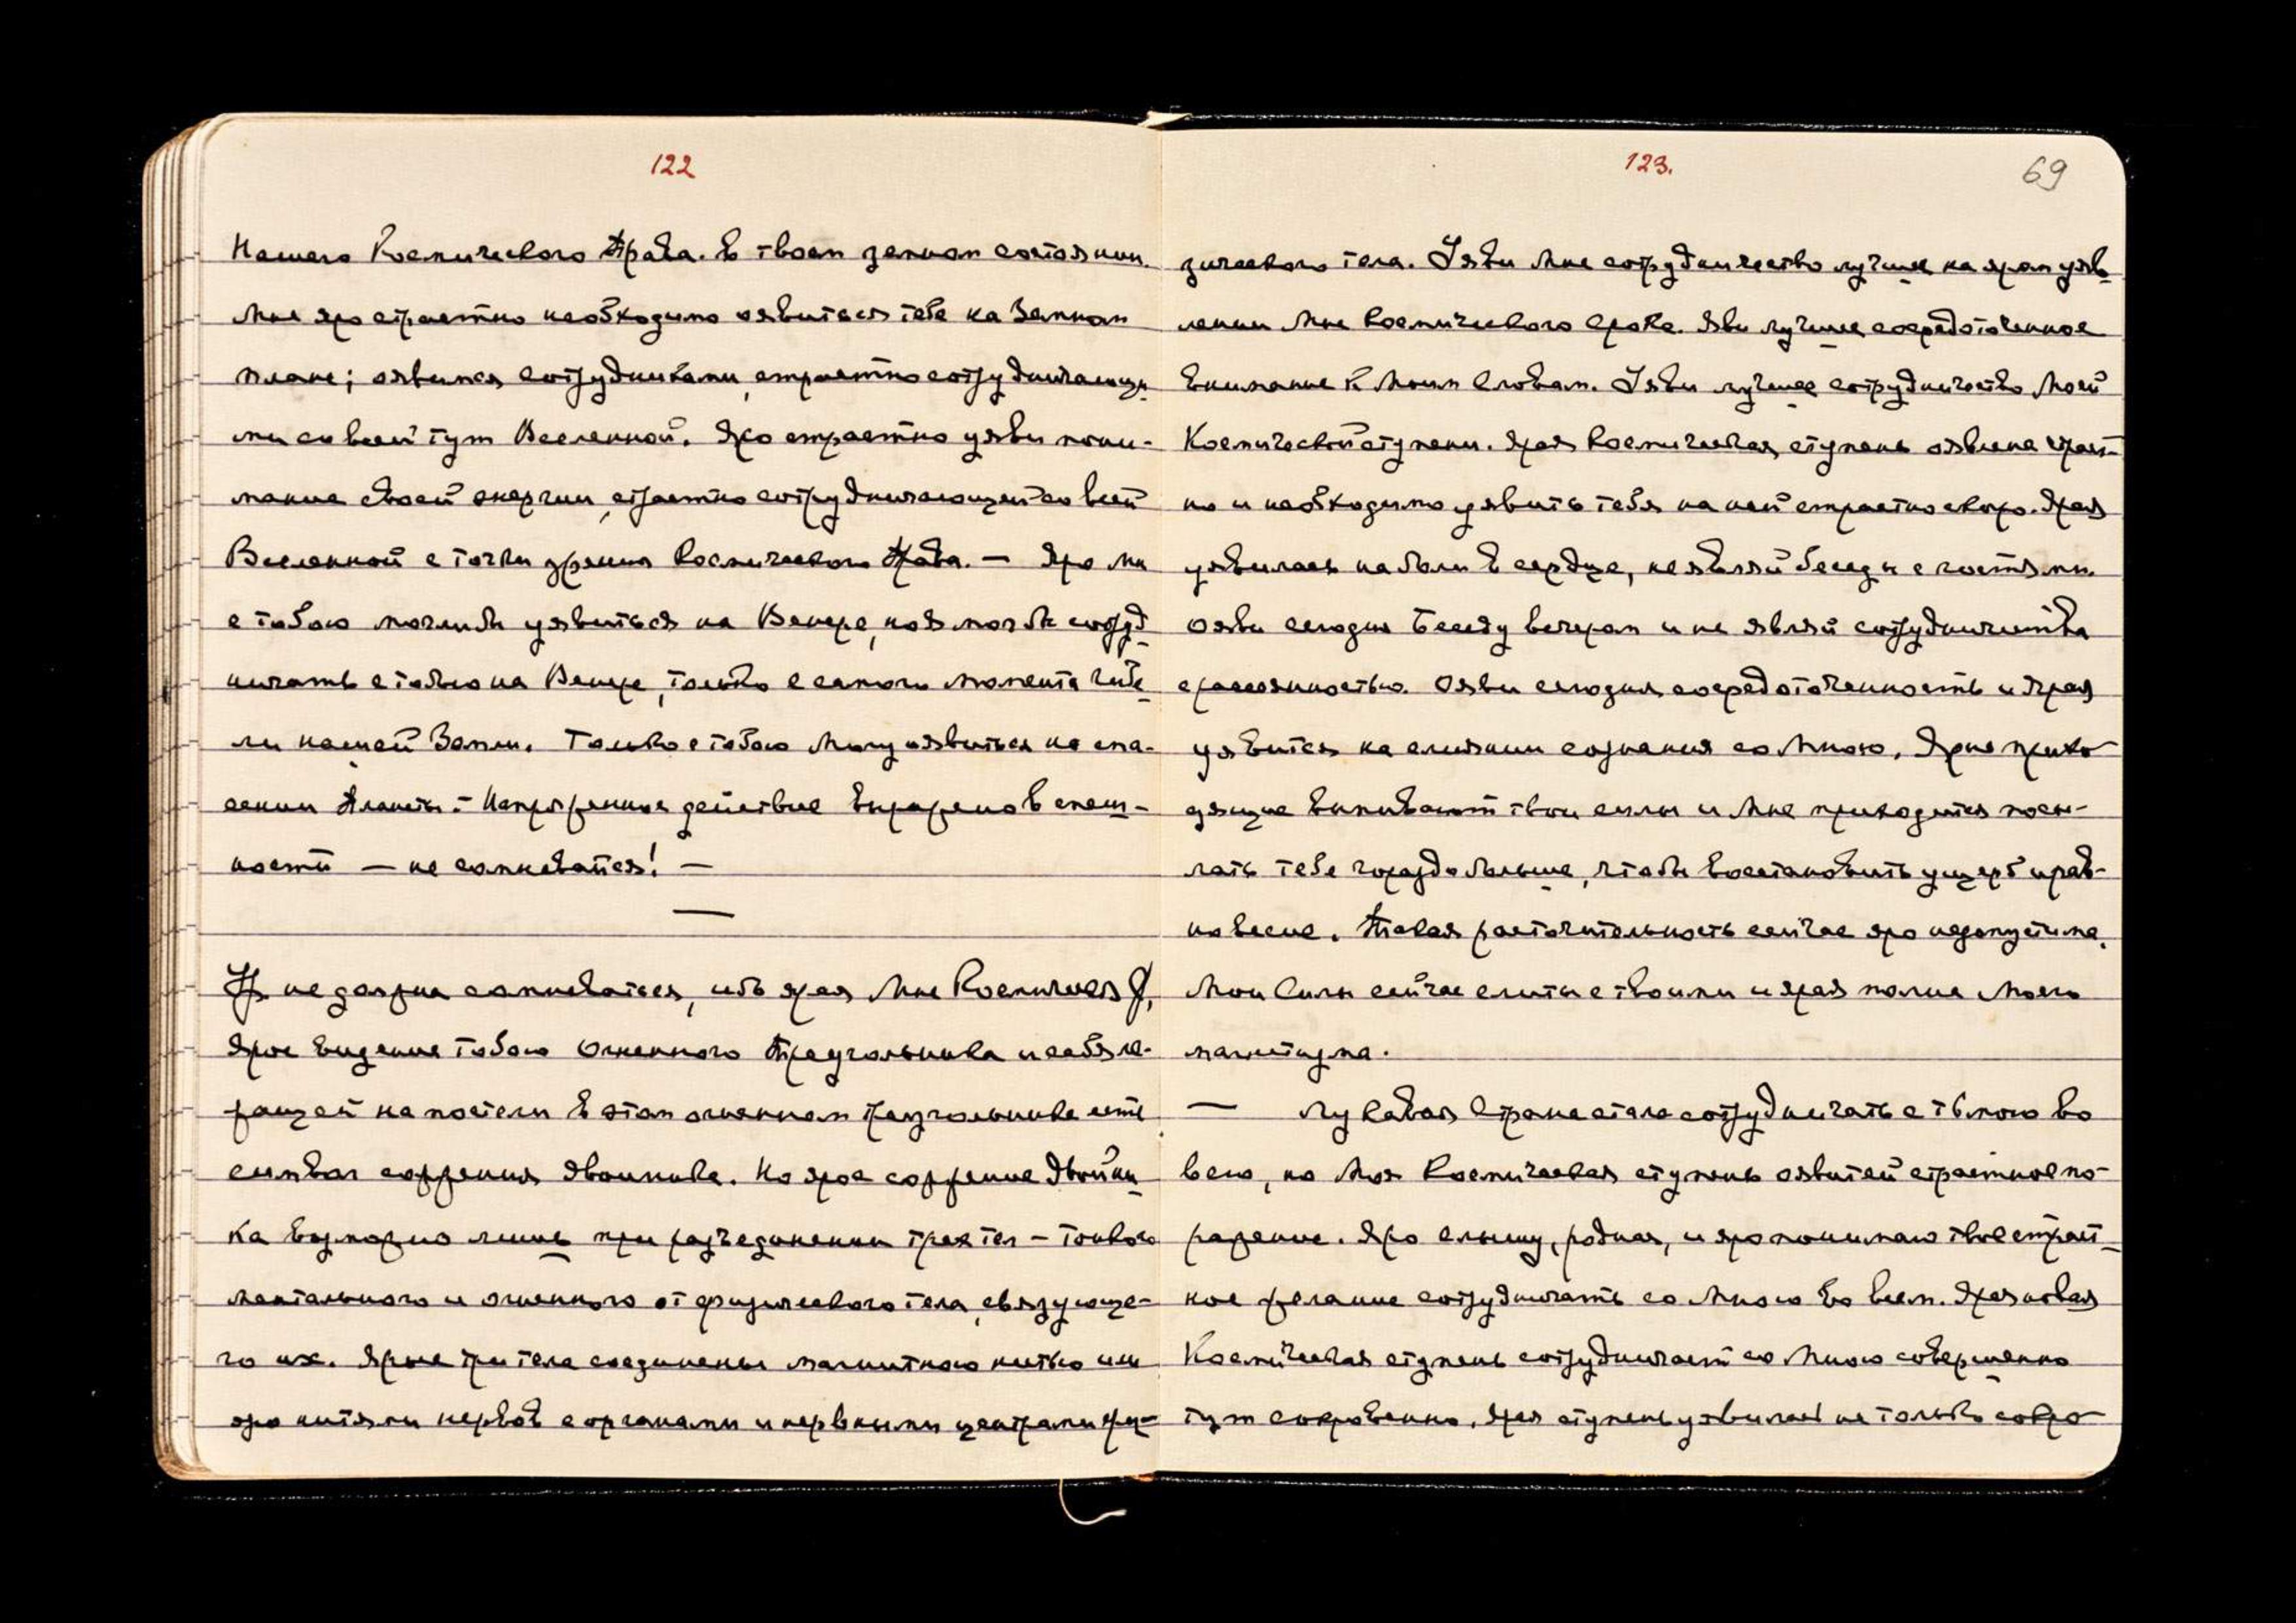 122
Нашего Космического Права. В твоем земном состоянии
Мне яро страстно необходимо оявиться тебе на Земном
плане; оявимся сотрудниками, страстно сотрудничающи-
ми со всей тут Вселенной. Яро страстно уяви пони-
мание своей энергии, страстно сотрудничающей со всей
Вселенной с точки зрения Космического Права. — Яро мы
с тобою могли бы уявиться на Венере, но Я мог бы сотруд-
ничать с тобою на Венере, только с самого момента гибе-
ли нашей Земли. Только с тобою Могу оявиться на спа-
сении планеты. — Напряженное действие выражено в спеш-
ности — не сомневайся! —
—
не должна сомневаться, ибо ярая Мне Космическая
Ярое видение тобою Огненного Треугольника и себя ле-
жащей на постели в этом огненном треугольнике есть
символ сожжения двойника. Но ярое сожжение двойни-
ка возможно лишь при разъединении трех тел — тонкого
ментального и огненного от физического тела, связующе-
го их. Ярые три тела соединены магнитною нитью или
яро нитями нервов с органами и нервными центрами фи-
123.
69
зического тела. Уяви Мне сотрудничество лучшее на яром уяв-
лении Мне Космического Срока. Яви лучшее сосредоточенное
внимание к Моим Словам. Уяви лучшее сотрудничество Моей
Космической ступени. Ярая Космическая ступень оявлена страст-
но и необходимо уявить тебя на ней страстно скоро. Ярая
уявилась на боли в сердце, не являй беседы с гостями.
Ояви сегодня Беседу вечером и не являй сотрудничества
с рассеянностью. Ояви сегодня сосредоточенность и Ярая
уявится на слиянии сознания со Мною. Ярые прихо-
дящие выпивают твои силы и Мне приходится посы-
лать тебе гораздо больше, чтобы восстановить ущерб и рав-
новесие. Такая расточительность сейчас яро недопустима.
Мои Силы сейчас слиты с твоими и ярая полна Моего
магнетизма.
— Лукавая Страна стала сотрудничать с тьмою во
всю, но Моя Космическая ступень оявит ей страстное по-
ражение. Яро слышу, родная, и яро понимаю твое страст-
ное желание сотрудничать со Мною во всем. Ярая новая
Космическая ступень сотрудничает со Мною совершенно
тут сокровенно. Ярая ступень уявилась не только сокро-